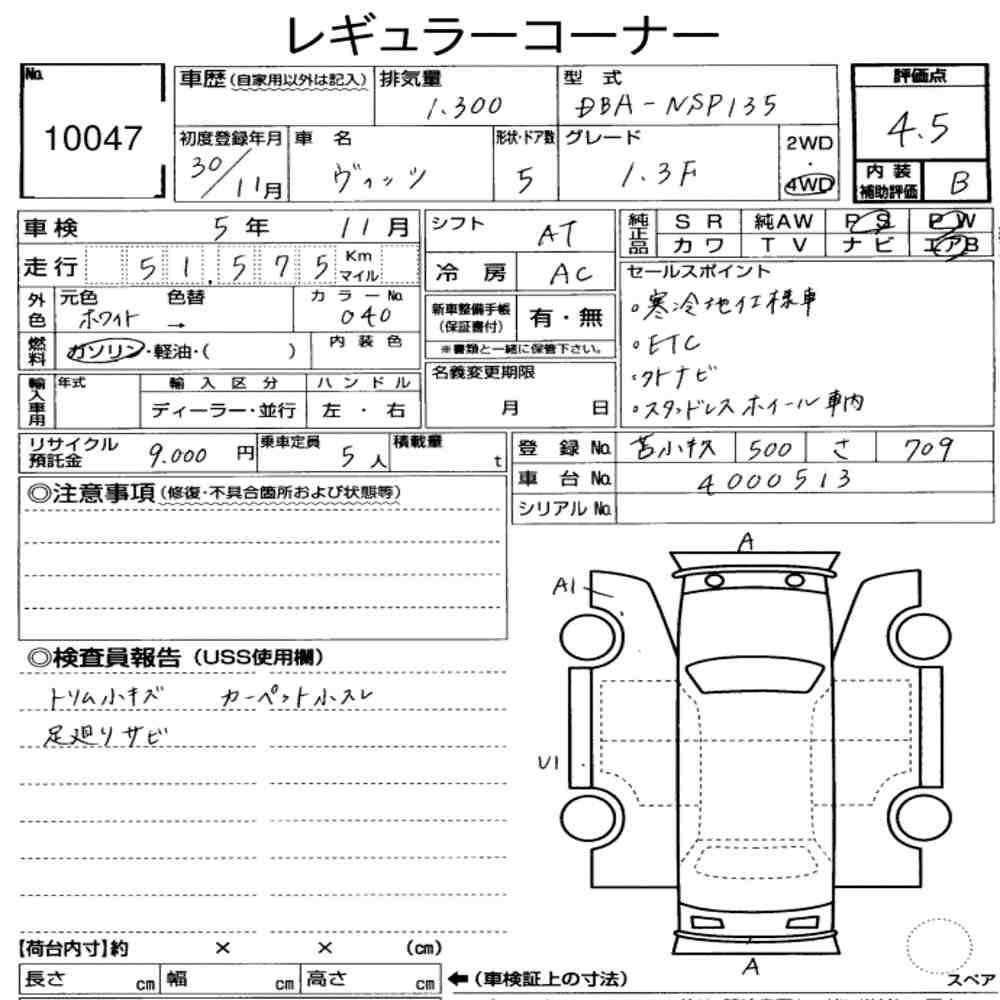 レギュラーコーナー
No. 10047
車歴(自家用以外は記入) 排気量 1.300
型式 DBA-NSP135
評価点 4.5
内装補助評価 B
初度登録年月 30/11月
車名 ヴィッツ
形状・ドア数 5
グレード 1.3F
2WD・4WD
車検 5年 11月
シフト AT
純正品 SR 純AW PS PW
カワ TV ナビ エアB
走行 51,575 Km マイル
冷房 AC
セールスポイント
外色 元色 ホワイト 色替 → カラーNo. 040
新車整備手帳(保証書付) 有・無
。寒冷地仕様車
燃料 ガソリン・軽油・( ) 内装色
※書類と一緒に保管下さい。
。ETC
輸入車用 年式 輸入区分 ハンドル
ディーラー・並行 左・右
名義変更期限
月 日
ナビ
。スタッドレスホイール車内
リサイクル預託金 9.000円 乗車定員 5人 積載量 t
登録No. 苫小牧 500 さ 709
車台No. 4000513
シリアルNo.
◎注意事項(修復・不具合箇所および状態等)
A
A1
◎検査員報告(USS使用欄)
トリム小キズ カーペット小スレ
足廻りサビ
U1
A
【荷台内寸】約 × × (cm)
長さ cm 幅 cm 高さ cm ←(車検証上の寸法)
スペア